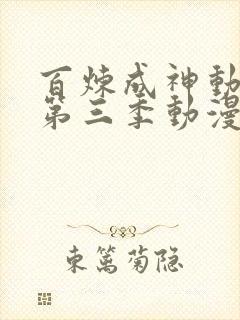 百炼成神動
第三季動漫
東篱菊隐